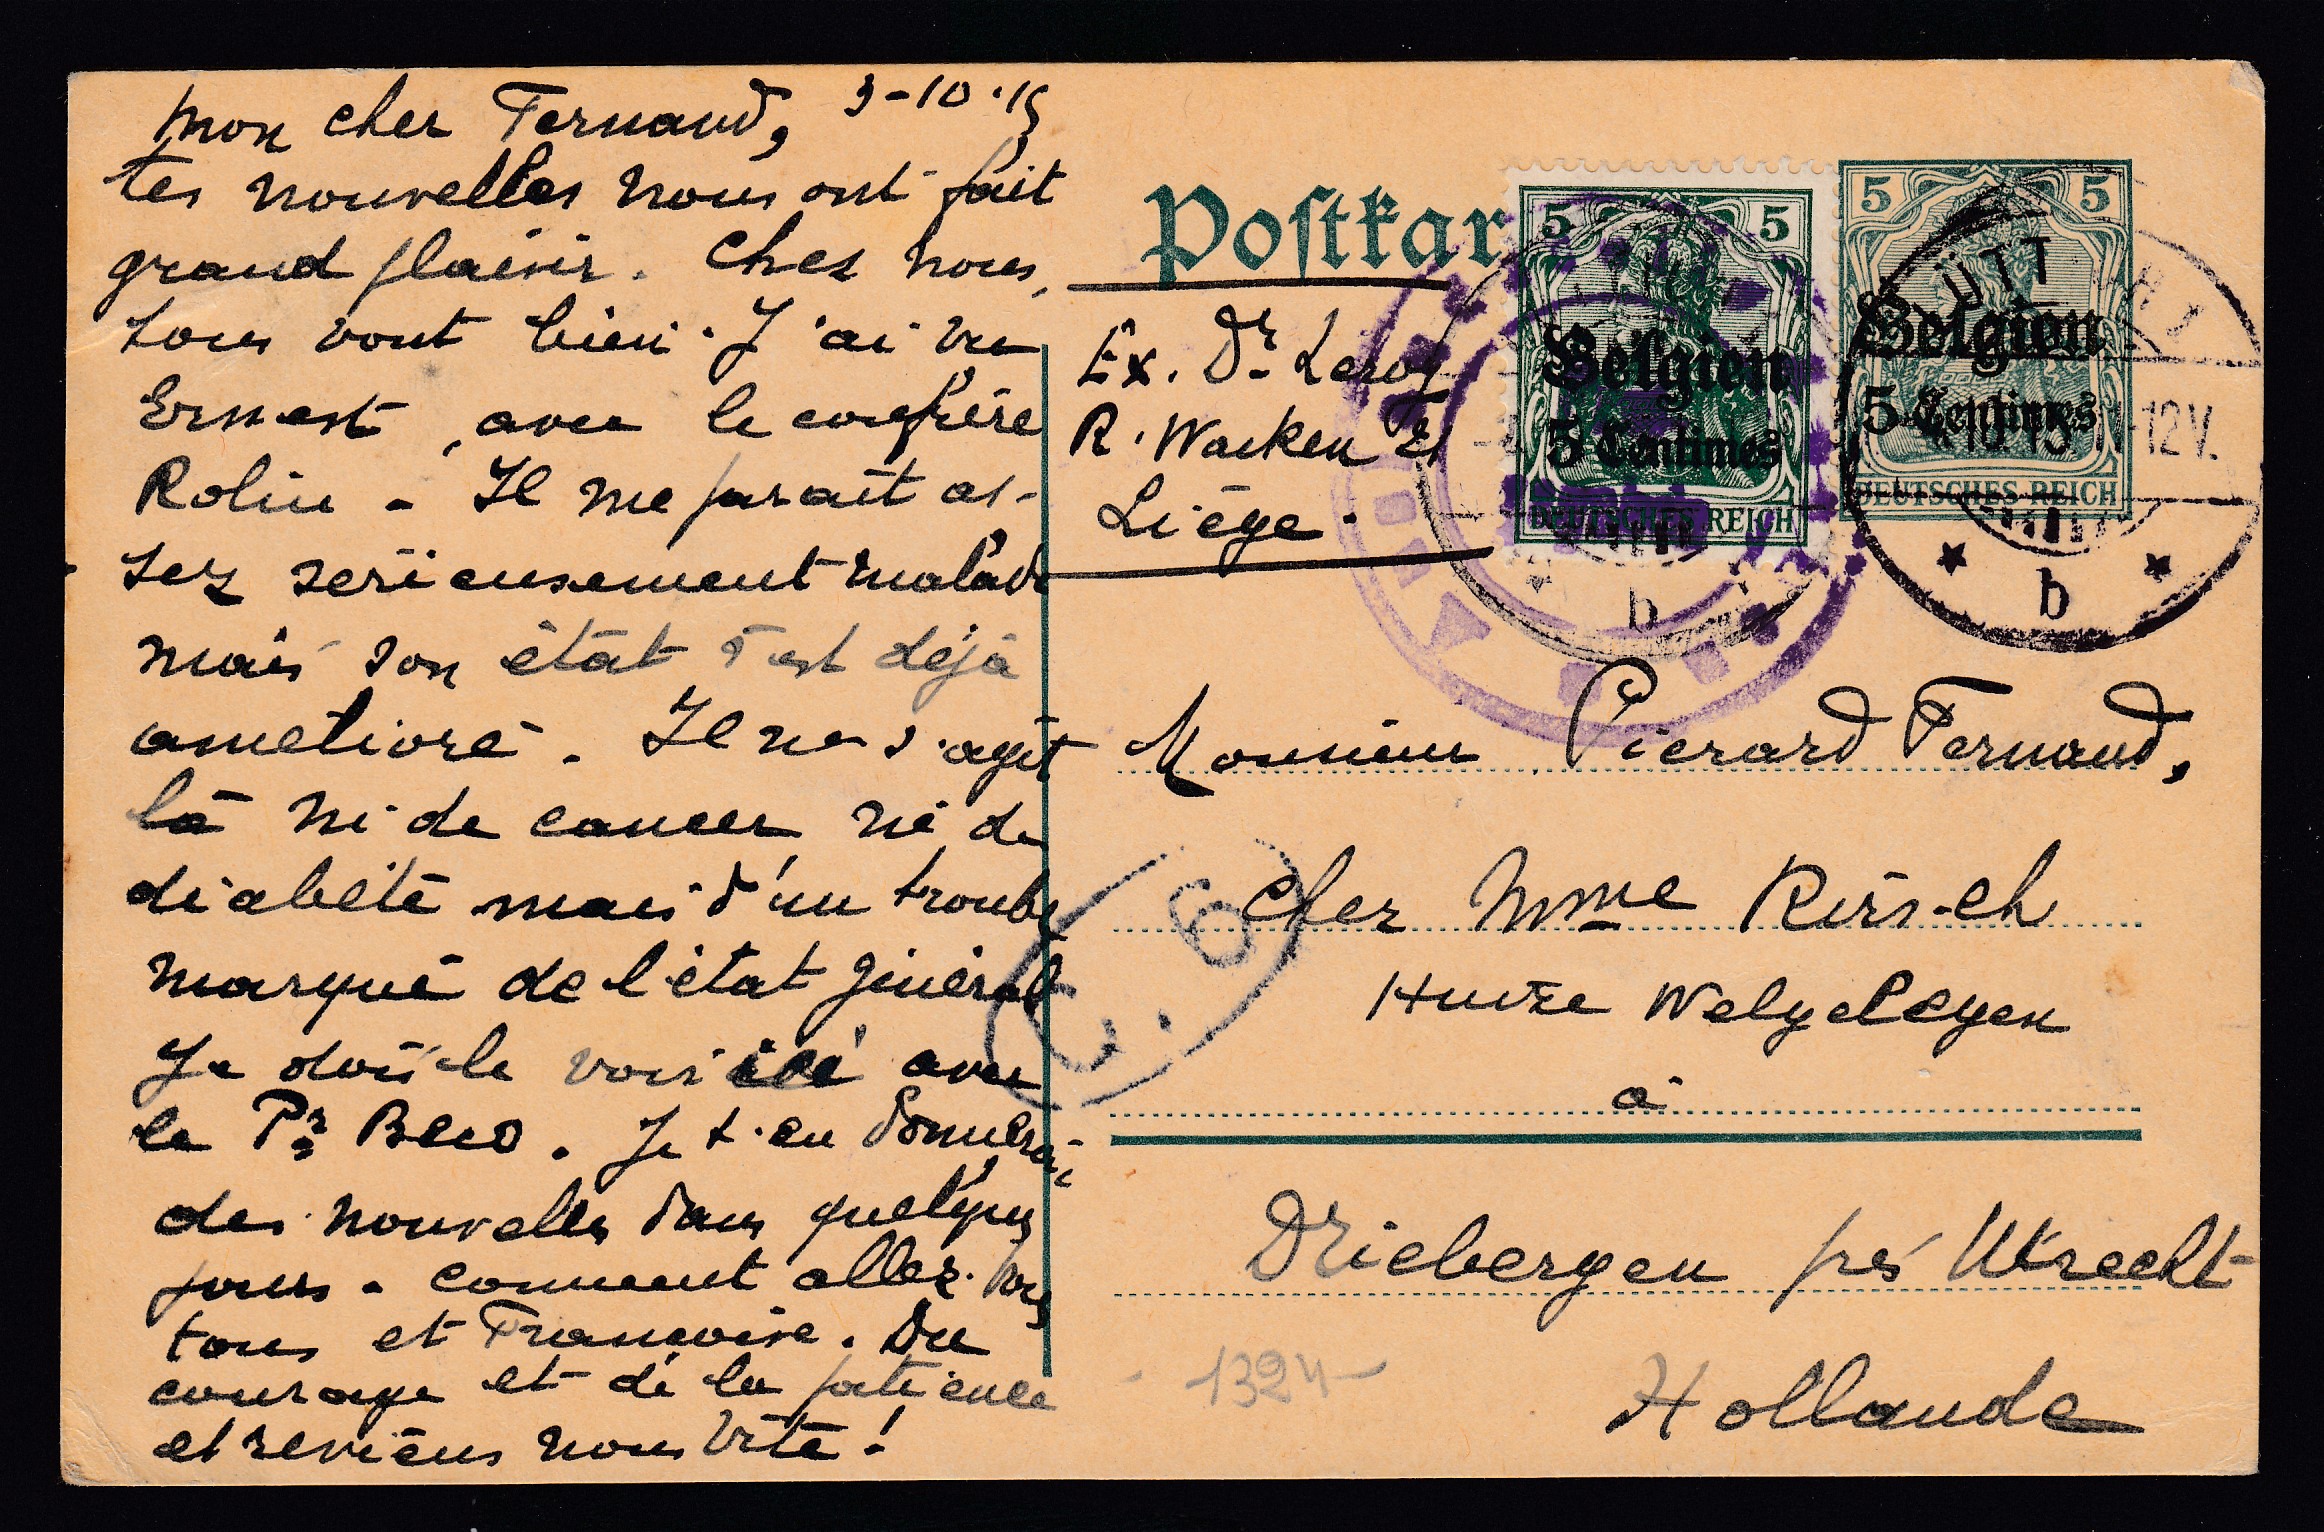 Mon cher Fernand, 3-10.15
tes nouvelles nous ont fait
grand plaisir. Chez nous,
tous vont bien. J'ai vu
Ernest, avec le confrère
Rolin - Il me paraît as-
sez sérieusement malade
mais son état s'est déjà
amélioré. Il ne s'agit
là ni de cancer ni de
diabète mais d'un trouble
marqué de l'état général
Je dois le voir ici avec
le Pr Beco. Je t'en donnerai
des nouvelles dans quelques
jours. Comment allez-vous
tous et Françoise. Du
courage et de la patience
et reviens nous vite!
Postkar
Ex. Dr Leroy
R. Wacken 21
Liège.
5 5
Belgien
5 Centimes
DEUTSCHES REICH
b
5 5
Belgien
5 Centimes
DEUTSCHES REICH
ÜTT
12V.
b
Monsieur Pierard Fernand,
Cher Mme Kirsch
Huize Welgelegen
à
Driebergen près Utrecht
Hollande
-1324-